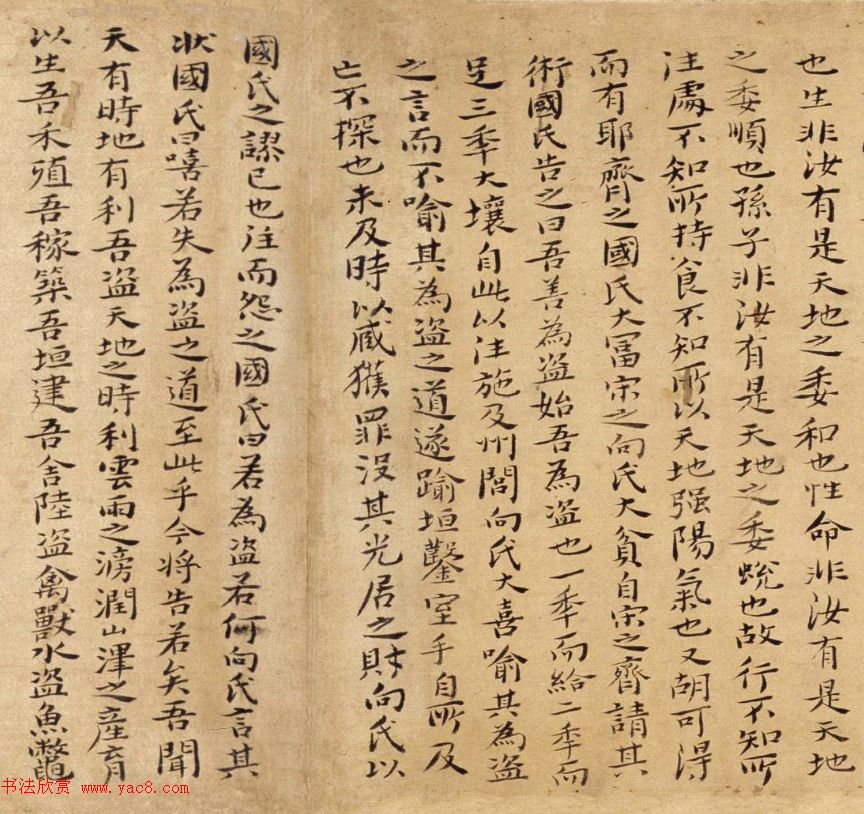 也生非汝有是天地之委和也性命非汝有是天地
之委順也孫子非汝有是天地之委蛻也故行不知所
往處不知所持食不知所以天地强陽氣也又胡可得
而有耶齊之國氏大冨宋之向氏大貧自宋之齊請其
術國氏告之曰吾善為盗始吾為盗也一年而給二年而
足三年大壤自此以往施及州閭向氏大喜喻其為盗
之言而不喻其為盗之道遂踰垣鑿室手自所及
亡不探也未及時以臧獲罪没其先居之財向氏以
國氏之謬已也往而怨之國氏曰若為盗若何向氏言其
狀國氏曰嘻若失為盗之道至此乎今將告若矣吾聞
天有時地有利吾盗天地之時利雲雨之滂潤山澤之産育
以生吾禾殖吾稼築吾垣建吾舍陸盗禽獸水盗魚鼈
书法欣赏 www.yac8.com